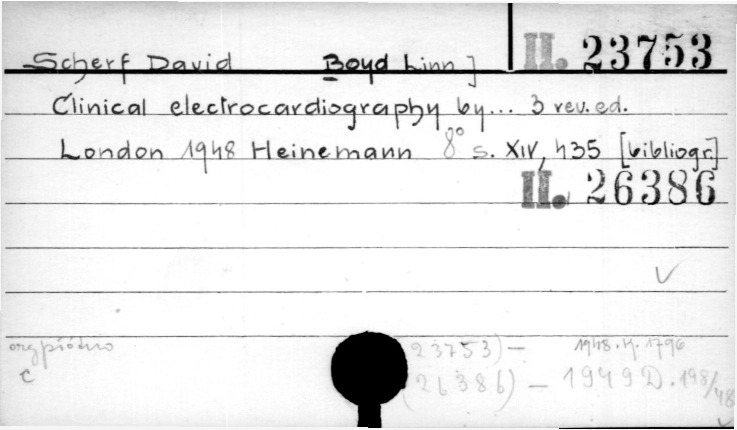 Scherf David Boyd Linn] II. 23753
Clinical electrocardiography by... 3 rev. ed.
London 1948 Heinemann 8° s. XIV, 435 [bibliogr.]
II. 26386
org płótno (23753) – 1948.K.1796
c (26386) – 1949 D. 198/48